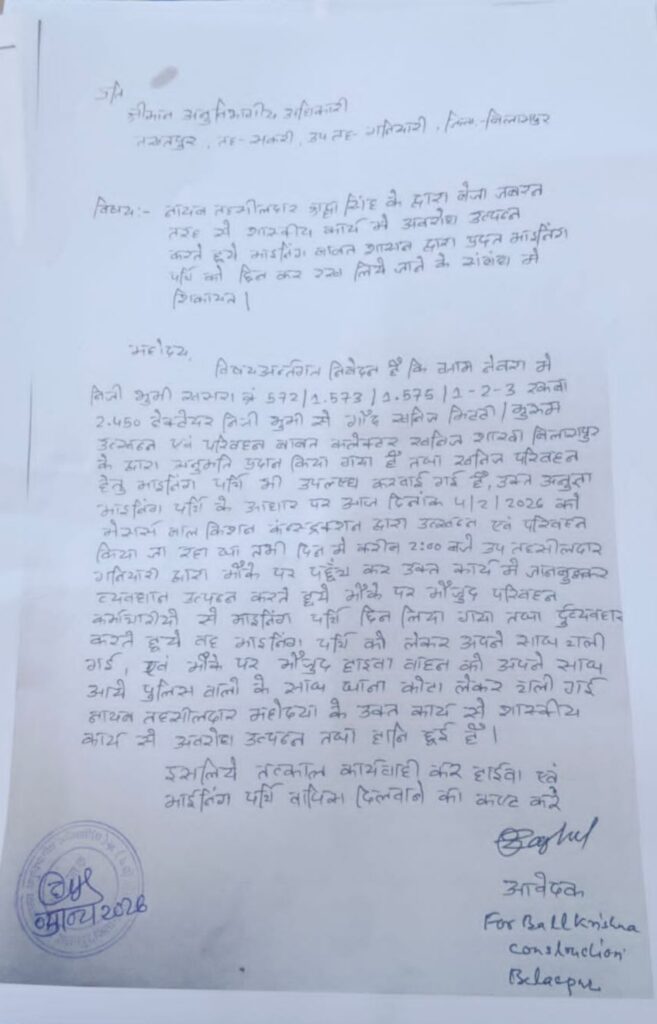 प्रति
श्रीमान अनुविभागीय अधिकारी
तखतपुर, तह- सकरी, उप तह- गनियारी, जिला-बिलासपुर
विषय:- नायब तहसीलदार सिंह के द्वारा बेजा जबरन
तरह से शासकीय कार्य मे अवरोध उत्पन्न
करते हूये माइनिंग बाबत शासन द्वारा प्रदत माइनिंग
पर्चि को छिन कर रख लिये जाने के संबंध मे
शिकायत |
महोदय,
विषयअन्तर्गत निवेदन है कि ग्राम नेवरा मे
निजी भुमी खसरा क्रं 572/1.573/1.575/1-2-3 रकबा
2.450 हेक्टेयर निजी भुमी से गौंण खनिज मिट्टी/मुरूम
उत्खनन एवं परिवहन बाबत कलेक्टर खनिज शाखा बिलासपुर
के द्वारा अनुमति प्रदान किया गया है तथा खनिज परिवहन
हेतु माइनिंग पर्चि भी उपलब्ध करवाई गई है, उक्त
माइनिंग पर्चि के आधार पर आज दिनांक 4/2/2026 को
मेसर्स बाल किशन कंन्स्ट्रक्शन द्वारा उत्खनन एवं परिवहन
किया जा रहा था तभी दिन मे करीब 2:00 बजे उप तहसीलदार
गनियारी द्वारा मौंके पर पहुँच कर उक्त कार्य मे जानबुझकर
व्यवधान उत्पन्न करते हूये मौंके पर मौंजुद परिवहन
कर्मचारीयो से माइनिंग पर्चि छिन लिया गया तथा दुर्व्यवहार
करते हूये वह माइनिंग पर्चि को लेकर अपने साथ चली
गई, एवं मौंके पर मौंजुद हाइवा वाहन को अपने साथ
आये पुलिस वालो के साथ थाना कोटा लेकर चली गई
नायब तहसीलदार महोदया के उक्त कार्य से शासकीय
कार्य से अवरोध उत्पन्न तथा हानि हूई है |
इसलिये तत्काल कार्यवाही कर हाईवा एवं
माइनिंग पर्चि वापिस दिलवाने का कष्ट करे
आवेदक
For Ball Krishna
construction
Belaspur
2026